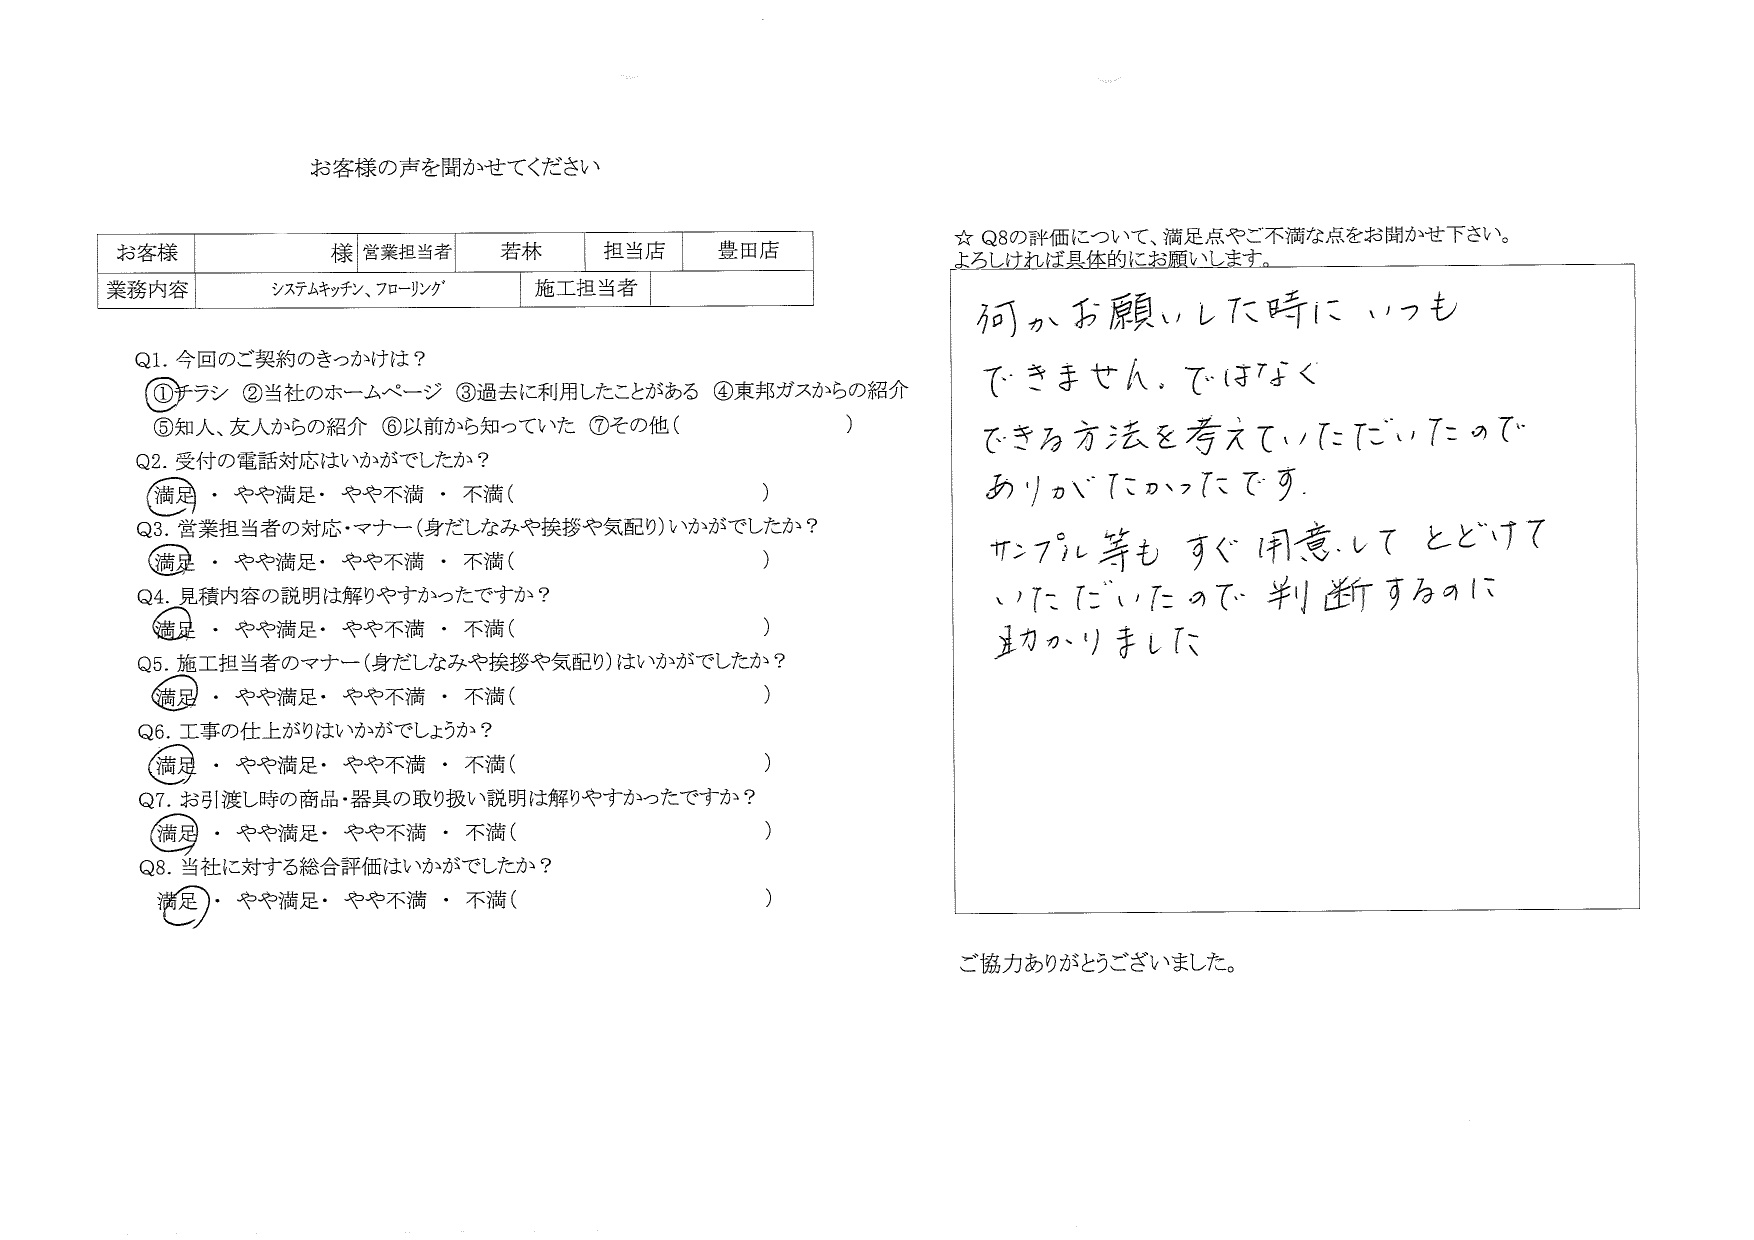 お客様の声を聞かせてください
お客様 様 営業担当者 若林 担当店 豊田店
業務内容 システムキッチン、フローリング 施工担当者
Q1. 今回のご契約のきっかけは？
①チラシ ②当社のホームページ ③過去に利用したことがある ④東邦ガスからの紹介
⑤知人、友人からの紹介 ⑥以前から知っていた ⑦その他( )
Q2. 受付の電話対応はいかがでしたか？
満足 ・ やや満足・ やや不満 ・ 不満( )
Q3. 営業担当者の対応・マナー(身だしなみや挨拶や気配り)いかがでしたか？
満足 ・ やや満足・ やや不満 ・ 不満( )
Q4. 見積内容の説明は解りやすかったですか？
満足 ・ やや満足・ やや不満 ・ 不満( )
Q5. 施工担当者のマナー(身だしなみや挨拶や気配り)はいかがでしたか？
満足 ・ やや満足・ やや不満 ・ 不満( )
Q6. 工事の仕上がりはいかがでしょうか？
満足 ・ やや満足・ やや不満 ・ 不満( )
Q7. お引渡し時の商品・器具の取り扱い説明は解りやすかったですか？
満足 ・ やや満足・ やや不満 ・ 不満( )
Q8. 当社に対する総合評価はいかがでしたか？
満足 ・ やや満足・ やや不満 ・ 不満( )
☆ Q8の評価について、満足点やご不満な点をお聞かせ下さい。
よろしければ具体的にお願いします。
何かお願いした時に いつも
できません。ではなく
できる方法を考えていただいたので
ありがたかったです.
サンプル等も すぐ用意して とどけて
いただいたので 判断するのに
助かりました
ご協力ありがとうございました。